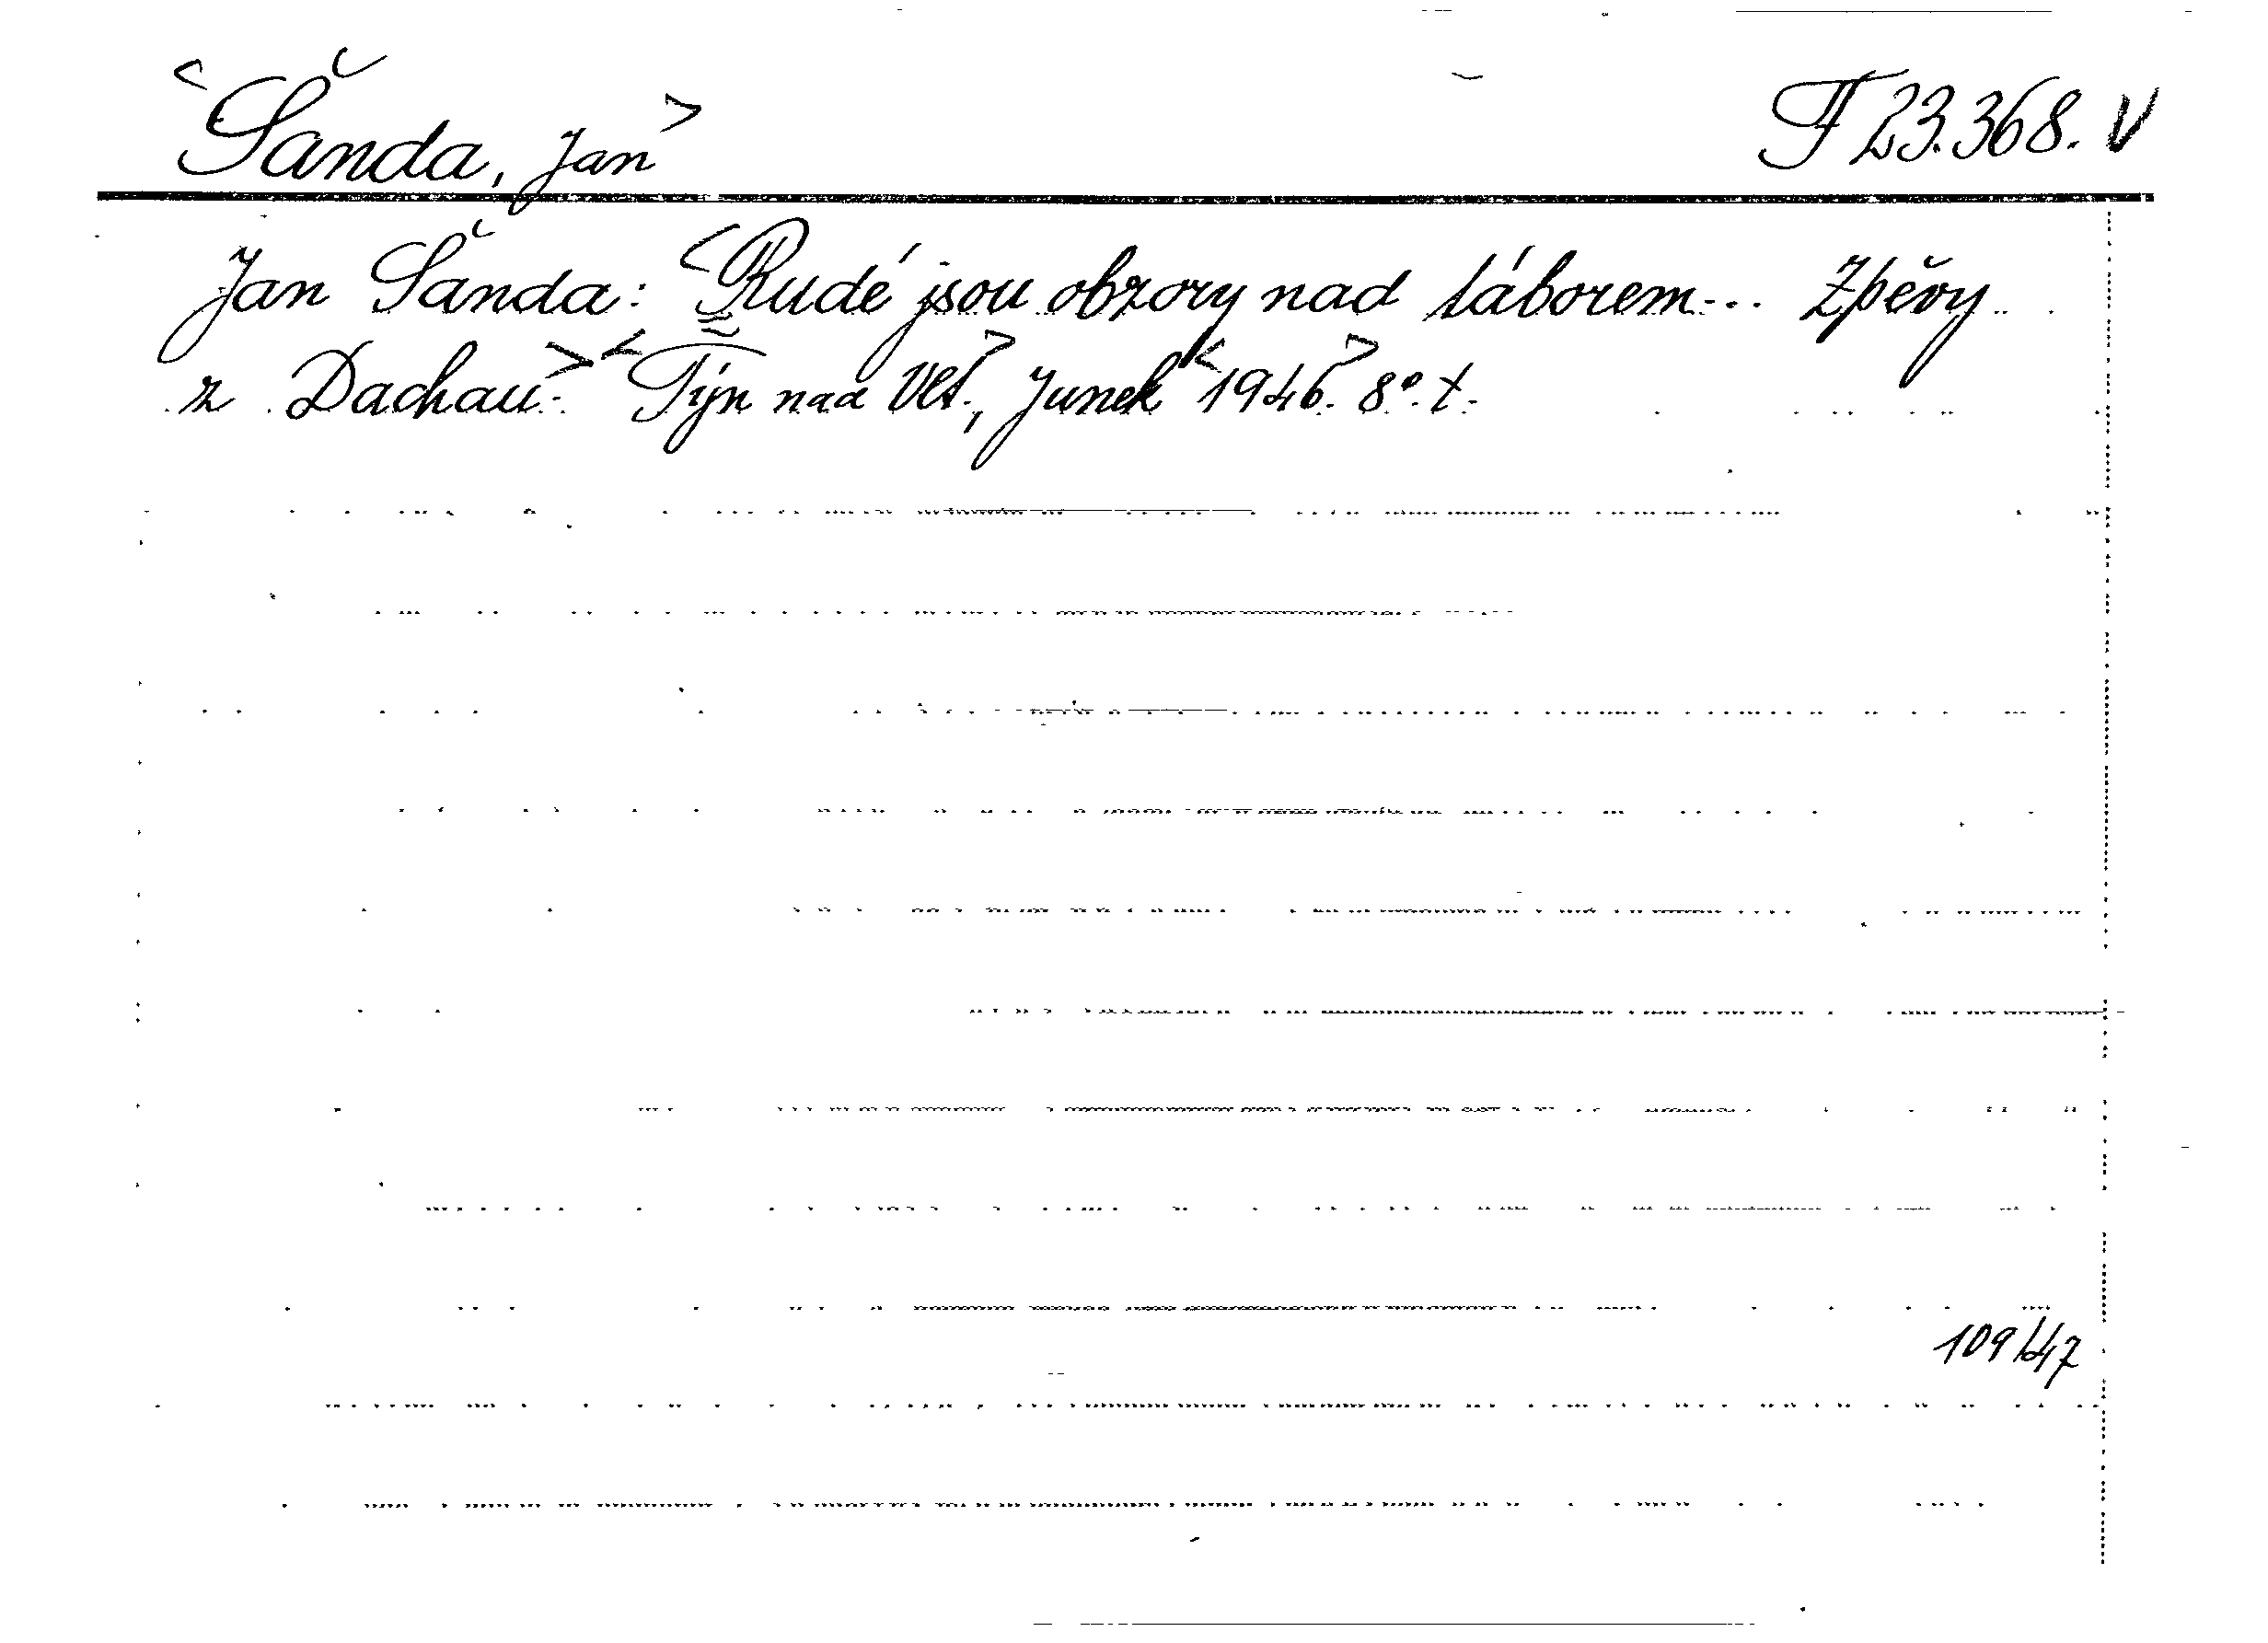 <Šanda, Jan> F 23.368. V
Jan Šanda: <Rudé jsou obzory nad táborem... Zpěvy
z Dachau.> <Týn nad Vlt.>, Junek <1946.> 8°. t.
109/47